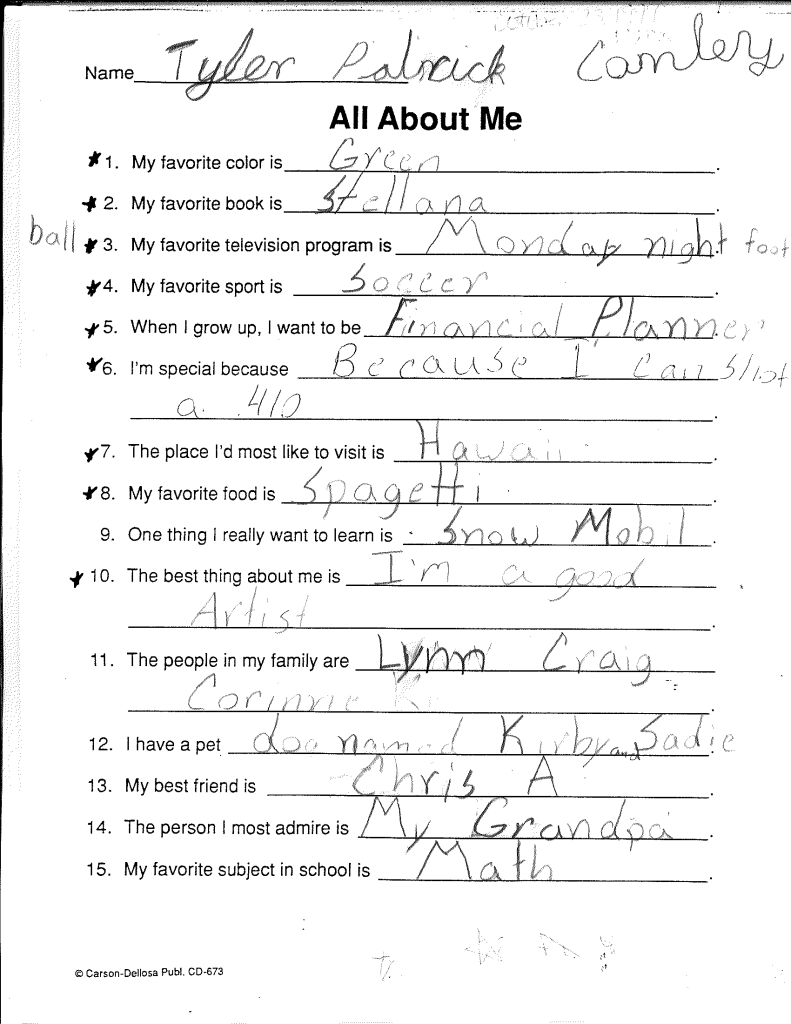 October 23, 1997
Name Tyler Patrick Conley
All About Me
★ 1. My favorite color is Green.
★ 2. My favorite book is Stellana.
★ 3. My favorite television program is Monday night foot
ball
★ 4. My favorite sport is Soccer.
★ 5. When I grow up, I want to be Financial Planner.
★ 6. I'm special because Because I can shot
a .410.
★ 7. The place I'd most like to visit is Hawaii.
★ 8. My favorite food is Spagetti.
9. One thing I really want to learn is Snow Mobil.
★ 10. The best thing about me is I'm a good
Artist.
11. The people in my family are Lynn Craig
Corinne K.
12. I have a pet dog named Kirby and Sadie.
13. My best friend is Chris A.
14. The person I most admire is My Grandpa.
15. My favorite subject in school is Math.
© Carson-Dellosa Publ. CD-673